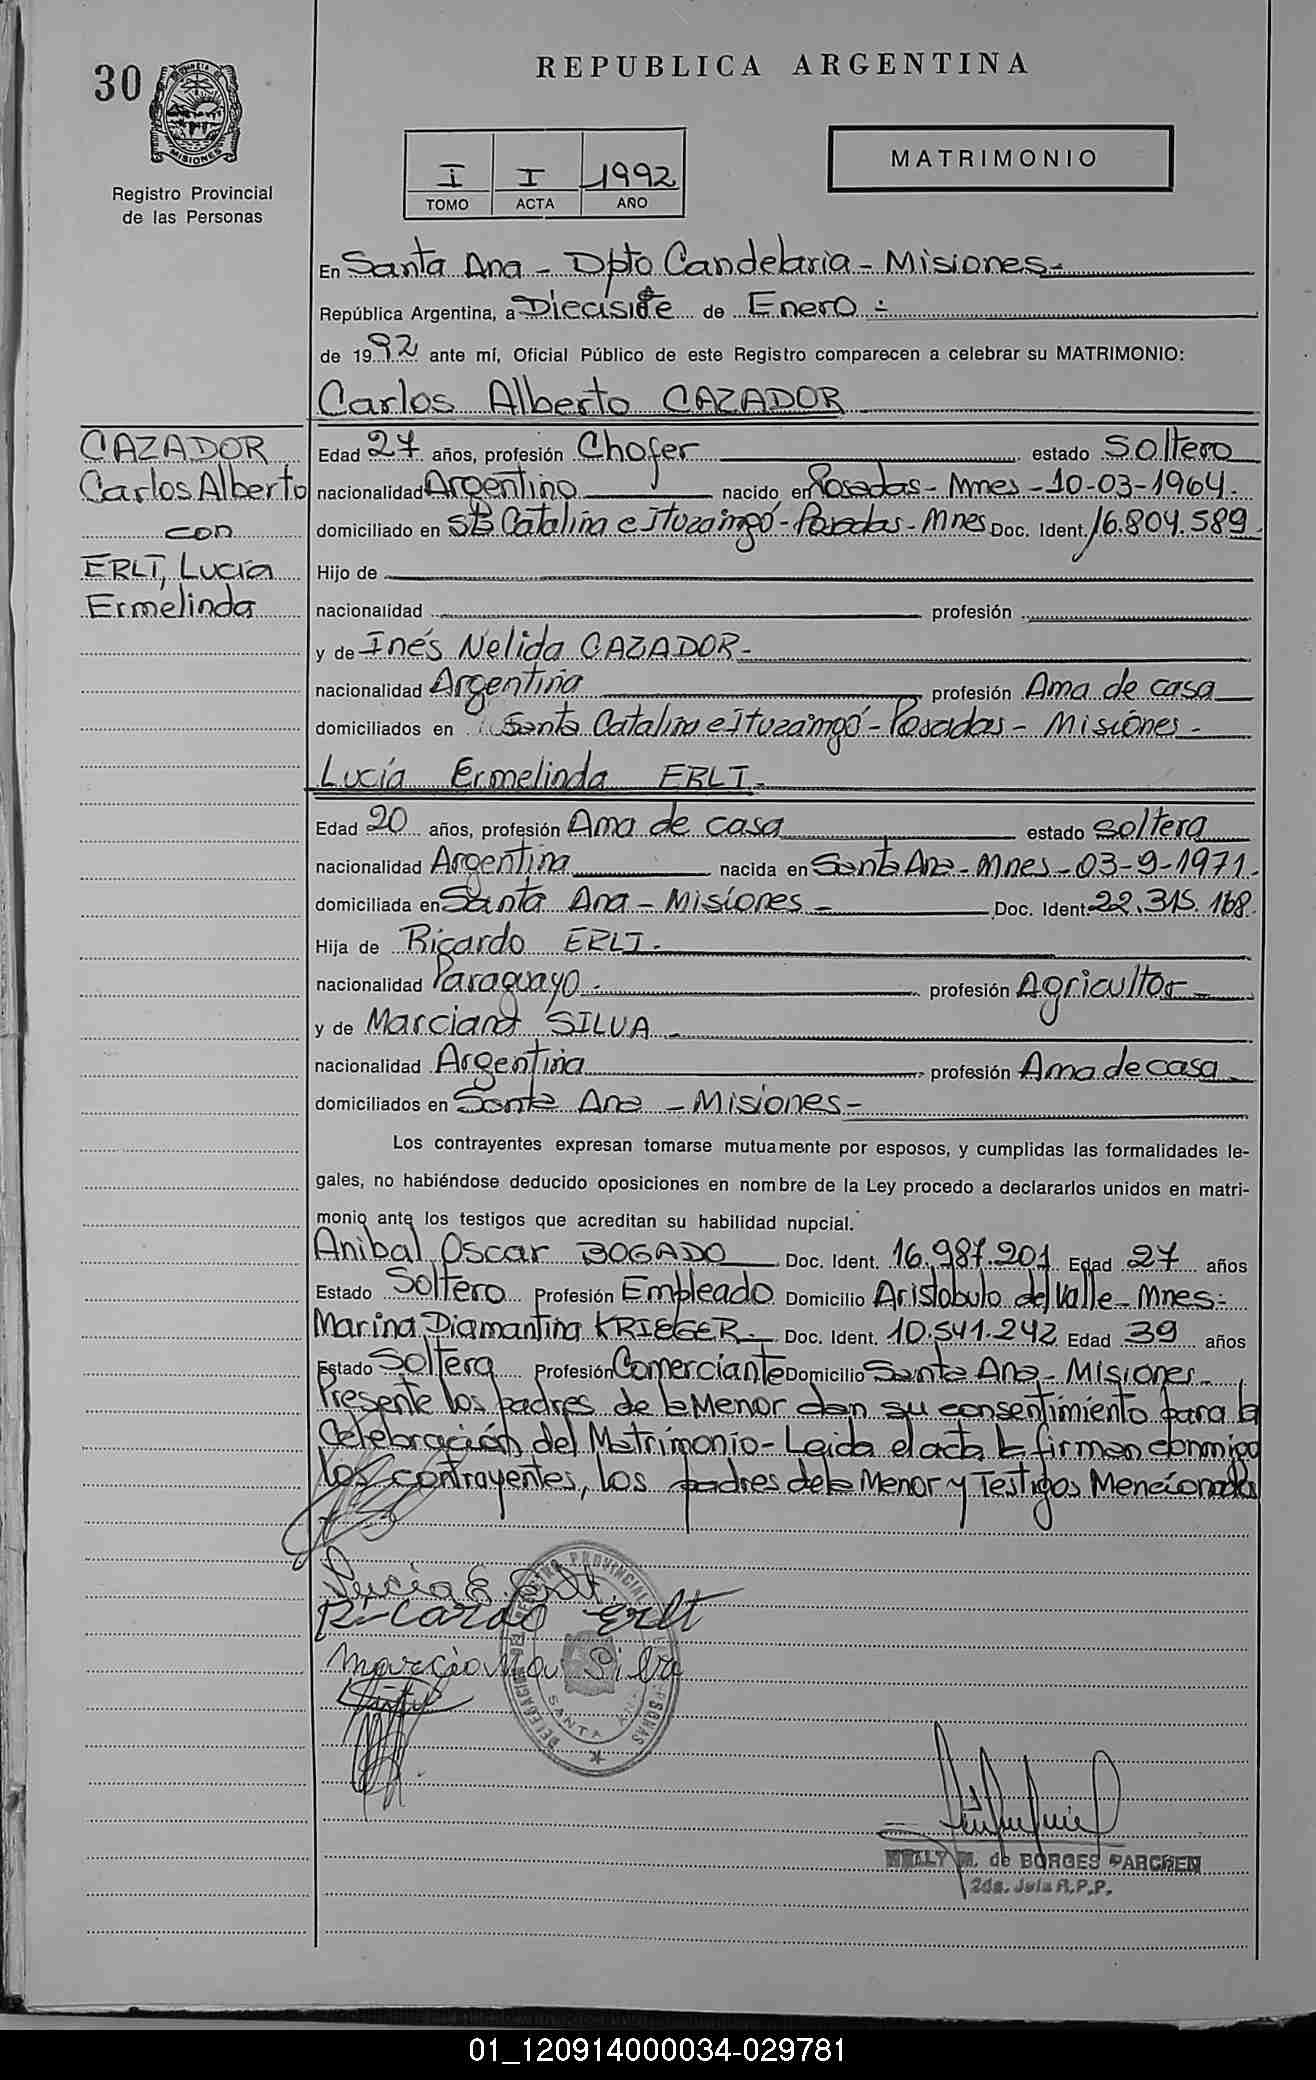 30
REPUBLICA ARGENTINA
MISIONES
Registro Provincial
de las Personas
I I 1992
TOMO ACTA AÑO
MATRIMONIO
En Santa Ana - Dpto Candelaria - Misiones -
República Argentina, a Diecisite de Enero -
de 1992 ante mí, Oficial Público de este Registro comparecen a celebrar su MATRIMONIO:
Carlos Alberto CAZADOR
CAZADOR
Carlos Alberto
con
ERLT, Lucía
Ermelinda
Edad 27 años, profesión Chofer estado Soltero
nacionalidad Argentino nacido en Posadas - Mnes - 10-03-1964.
domiciliado en Sta Catalina e Ituzaingó - Posadas - Mnes Doc. Ident. 16.804.589.
Hijo de
nacionalidad profesión
y de Inés Nelida CAZADOR -
nacionalidad Argentina profesión Ama de casa
domiciliados en Santa Catalina e Ituzaingó - Posadas - Misiones -
Lucía Ermelinda ERLT -
Edad 20 años, profesión Ama de casa estado soltera
nacionalidad Argentina nacida en Santa Ana - Mnes - 03-9-1971.
domiciliada en Santa Ana - Misiones - Doc. Ident. 22.315.168.
Hija de Ricardo ERLT.
nacionalidad Paraguayo - profesión Agricultor
y de Marciana SILVA -
nacionalidad Argentina profesión Ama de casa
domiciliados en Santa Ana - Misiones -
Los contrayentes expresan tomarse mutuamente por esposos, y cumplidas las formalidades le-
gales, no habiéndose deducido oposiciones en nombre de la Ley procedo a declararlos unidos en matri-
monio ante los testigos que acreditan su habilidad nupcial.
Anibal Oscar BOGADO Doc. Ident. 16.987.201 Edad 27 años
Estado Soltero Profesión Empleado Domicilio Aristobulo del Valle - Mnes -
Marina Diamantina KRIEGER - Doc. Ident. 10.541.242 Edad 39 años
Estado Soltera Profesión Comerciante Domicilio Santa Ana - Misiones -
Presente los padres de la Menor dan su consentimiento para la
Celebración del Matrimonio - Leida el acta la firman conmigo
los contrayentes, los padres de la Menor y Testigos Mencionados
Lucia E. Erlt
Ricardo Erlt
Marciana Silva
DELEGACION REGISTRO PROVINCIAL PERSONAS
SANTA ANA
NELLY M. de BORGES PARCHEN
2da. Jefa R.P.P.
01_120914000034-029781